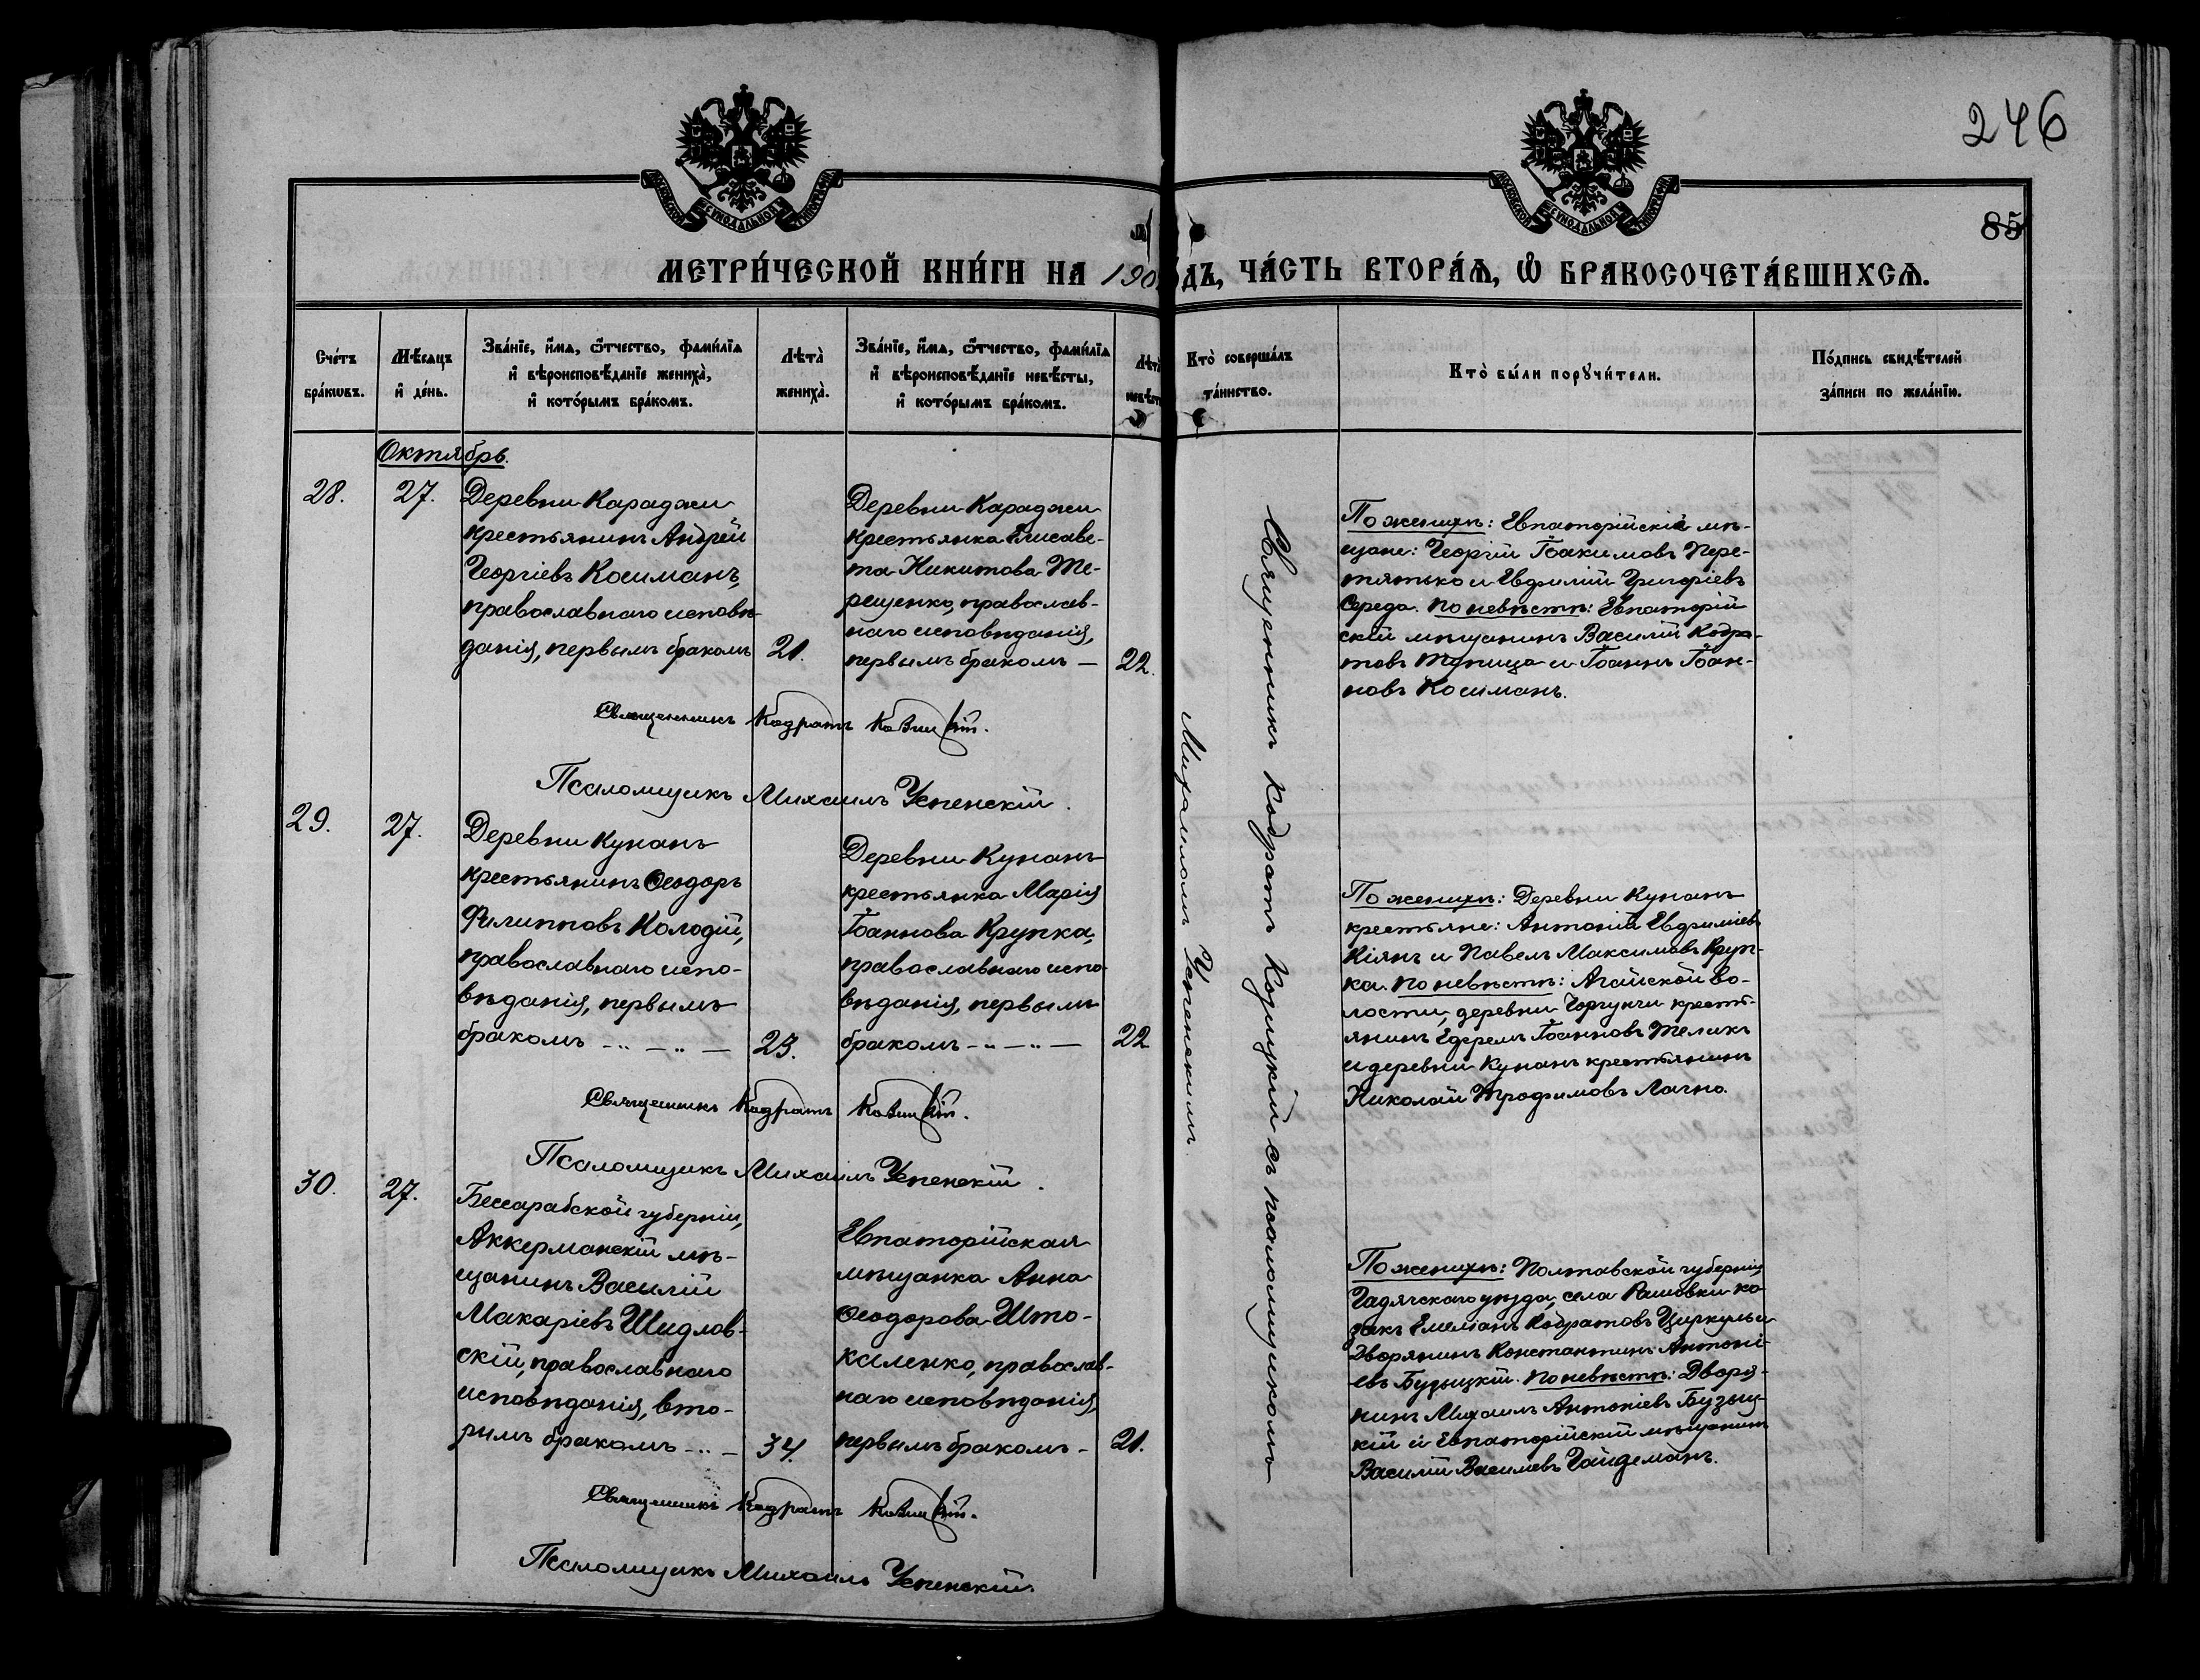 246
85
МЕТРИ́ЧЕСКОЙ КНИ́ГИ НА 190 ДЪ, ЧА́СТЬ ВТОРА́Ѧ, Ѽ БРАКОСОЧЕТА́ВШИХСѦ.
Сче́тъ бра́кѡвъ.
Мѣ́сѧцъ и҆ де́нь.
Зва́нїе, и҆́мѧ, ѻ҆́тчество, фами́лїѧ и҆ вѣроисповѣ́данїе жениха̀, и҆ кото́рымъ бра́комъ.
Лѣта̀ жениха̀.
Зва́нїе, и҆́мѧ, ѻ҆́тчество, фами́лїѧ и҆ вѣроисповѣ́данїе невѣ́сты, и҆ кото́рымъ бра́комъ.
Лѣта̀ невѣ́ст
Кто̀ соверша́лъ та́инство.
Кто̀ бы́ли порꙋчи́тели.
По́дпись свидѣ́телей за́писи по жела́нїю.
Октябрь.
28.
27.
Деревни Караджи
крестьянинъ Андрей
Георгіевъ Косиманъ,
православнаго исповѣ-
данія, первымъ бракомъ
21.
Деревни Караджи
крестьянка Елисаве-
та Никитова Те-
рещенко, православ-
наго исповѣданія,
первымъ бракомъ —
22.
По женихѣ: Евпаторійскіе мѣ-
щане: Георгій Іоакимовъ Пере-
тятько и Евфимій Григоріевъ
Середа. По невѣстѣ: Евпаторій
скій мѣщанинъ Василій Кодра-
товъ Тупица и Іоаннъ Іоан-
новъ Косиманъ.
Священникъ Кодратъ
Псаломщикъ Михаилъ Успенскій.
29.
27.
Деревни Кунанъ
крестьянинъ Ѳеодоръ
Филипповъ Колодій,
православнаго испо-
вѣданія, первымъ
бракомъ -"-"-
23.
Деревни Кунанъ
крестьянка Марія
Іоаннова Крупка,
православнаго испо-
вѣданія, первымъ
бракомъ -"-"-
22
По женихѣ: Деревни Кунанъ
крестьяне: Антоній Евфиміевъ
Кіянъ и Павелъ Максимовъ Круп-
ка. По невѣстѣ: Агайской во-
лости, деревни крестъ-
янинъ Іоанновъ Теликъ
и деревни Кунанъ крестьянинъ
Николай Трофимовъ Лагно.
Священникъ Кодратъ
Псаломщикъ Михаилъ Успенскій.
30.
27.
Бессарабской губерніи,
Аккерманскій мѣ-
щанинъ Василій
Макаріевъ Шидлов-
скій, православнаго
исповѣданія, вто-
рымъ бракомъ -"-
34.
Евпаторійская
мѣщанка Анна
Ѳеодорова Што-
каленко, православ-
наго исповѣданія,
первымъ бракомъ -
21.
По женихѣ: Полтавской губерніи,
Гадячскаго уѣзда, села Рашовки ка-
закъ Емеліанъ Кодратовъ Циркуль и
Дворянинъ Константинъ Антоні-
евъ Бузыцкій. По невѣстѣ: Дворя-
нинъ Михаилъ Антоніевъ Бузыц-
кій и Евпаторійскій мѣщанинъ
Василій Васильевъ Гайдеманъ.
Священникъ Кодратъ
Псаломщикъ Михаилъ Успенскій.
Священникъ Кодратъ съ псаломщикомъ
Михаиломъ Успенскимъ